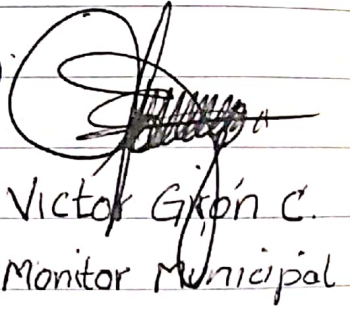 Victor Girón C.
Monitor Municipal